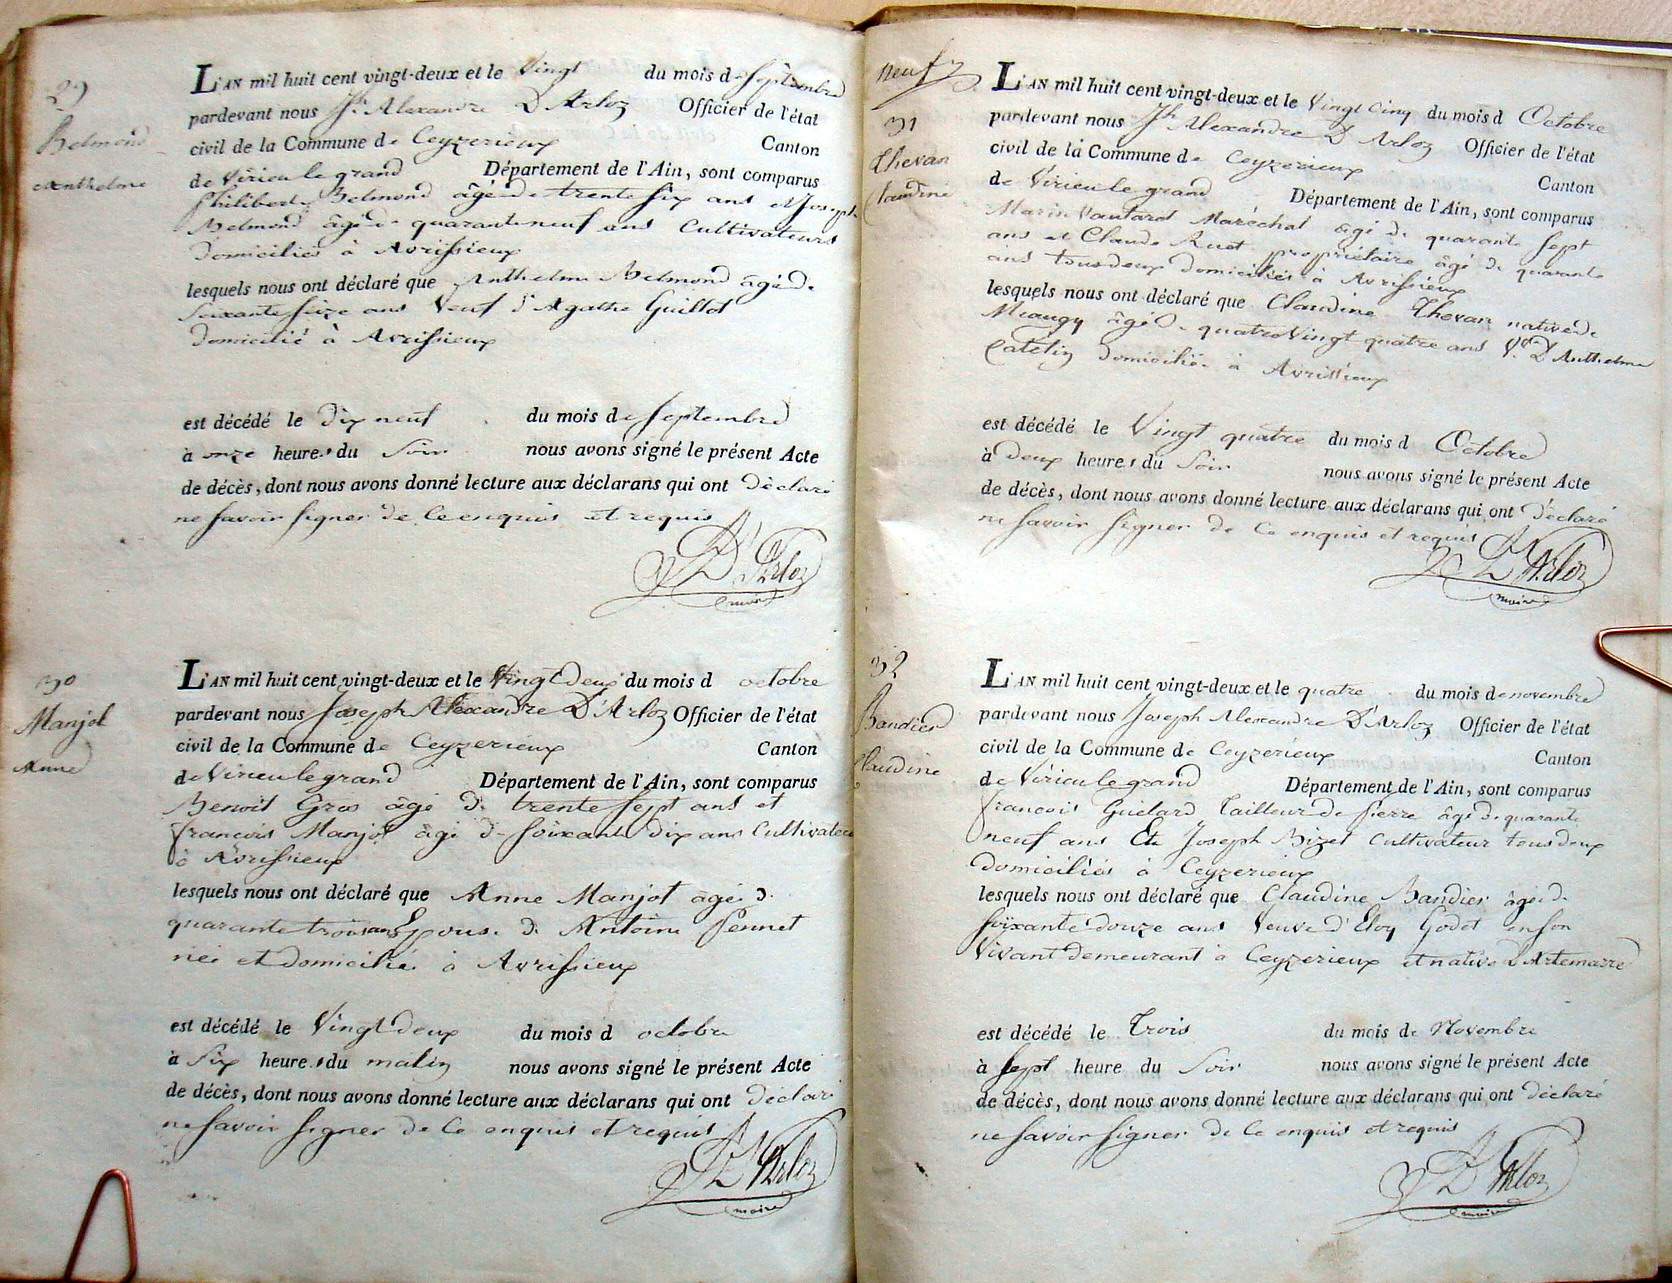 29
Belmond
Anthelme
L'AN mil huit cent vingt-deux et le Vingt du mois de Septembre
pardevant nous Jh Alexandre D'Arloz Officier de l'état
civil de la Commune de Ceyzerieux Canton
de Virieu le grand Département de l'Ain, sont comparus
Philibert Belmond âgé de trente six ans et Joseph
Belmond âgé de quarante neuf ans Cultivateurs
domiciliés à Avrissieux
lesquels nous ont déclaré que Anthelme Belmond âgé de
Soixante seize ans Veuf d'Agathe Guillot
domicilié à Avrissieux
est décédé le dix neuf du mois de Septembre
à onze heures du Soir nous avons signé le présent Acte
de décès, dont nous avons donné lecture aux déclarans qui ont Déclaré
ne Savoir signer de Ce enquis et requis
D'Arloz
maire
30
Manjot
Anne
L'AN mil huit cent vingt-deux et le Vingt Deux du mois d octobre
pardevant nous Joseph Alexandre D'Arloz Officier de l'état
civil de la Commune de Ceyzerieux Canton
de Virieu le grand Département de l'Ain, sont comparus
Benoit Gros âgé de trente sept ans et
françois Manjot âgé de soixante dix ans Cultivateurs
à Avrissieux
lesquels nous ont déclaré que Anne Manjot âgée de
quarante trois ans Epouse de Antoine Pennet
née et domiciliée à Avrissieux
est décédé le Vingt deux du mois d octobre
à Six heures du matin nous avons signé le présent Acte
de décès, dont nous avons donné lecture aux déclarans qui ont déclaré
ne Savoir signer de Ce enquis et requis
D'Arloz
maire
neuf
31
Thevan
Claudine
L'AN mil huit cent vingt-deux et le Vingt Cinq du mois d Octobre
pardevant nous Jh Alexandre D'Arloz Officier de l'état
civil de la Commune de Ceyzerieux Canton
de Virieu le grand Département de l'Ain, sont comparus
Marin Vautaret Maréchal âgé de quarante Sept
ans et Claude Ruet propriétaire âgé de quarante
ans tous deux domiciliés à Avrissieux
lesquels nous ont déclaré que Claudine Thevan native de
Miaugy âgée de quatre Vingt quatre ans Ve D'Anthelme
Catelin domiciliée à Avrissieux
est décédé le Vingt quatre du mois d Octobre
à deux heures du Soir nous avons signé le présent Acte
de décès, dont nous avons donné lecture aux déclarans qui ont Déclaré
ne Savoir Signer de Ce enquis et requis
D'Arloz
maire
32
Bandier
Claudine
L'AN mil huit cent vingt-deux et le quatre du mois de novembre
pardevant nous Joseph Alexandre D'Arloz Officier de l'état
civil de la Commune de Ceyzerieux Canton
de Virieu le grand Département de l'Ain, sont comparus
françois Guelard Tailleur de Pierre âgé de quarante
neuf ans Et Joseph Bizet Cultivateur tous deux
domiciliés à Ceyzerieux
lesquels nous ont déclaré que Claudine Bandier âgée de
soixante douze ans Veuve d'Eloy Godet en son
Vivant demeurant à Ceyzerieux et native D'Artemarre
est décédé le Trois du mois de Novembre
à Sept heure du Soir nous avons signé le présent Acte
de décès, dont nous avons donné lecture aux déclarans qui ont déclaré
ne Savoir signer de Ce enquis et requis
D'Arloz
maire